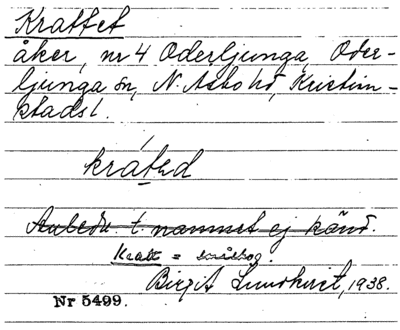 Krattet
åker, nr 4 Oderljunga, Oder-
ljunga sn, N. Åsbo hd, Kristian-
stads l.
kráted
Anledn. t. namnet ej känd.
Kratt = småskog.
Birgit Lundkvist, 1938.
Nr 5499.